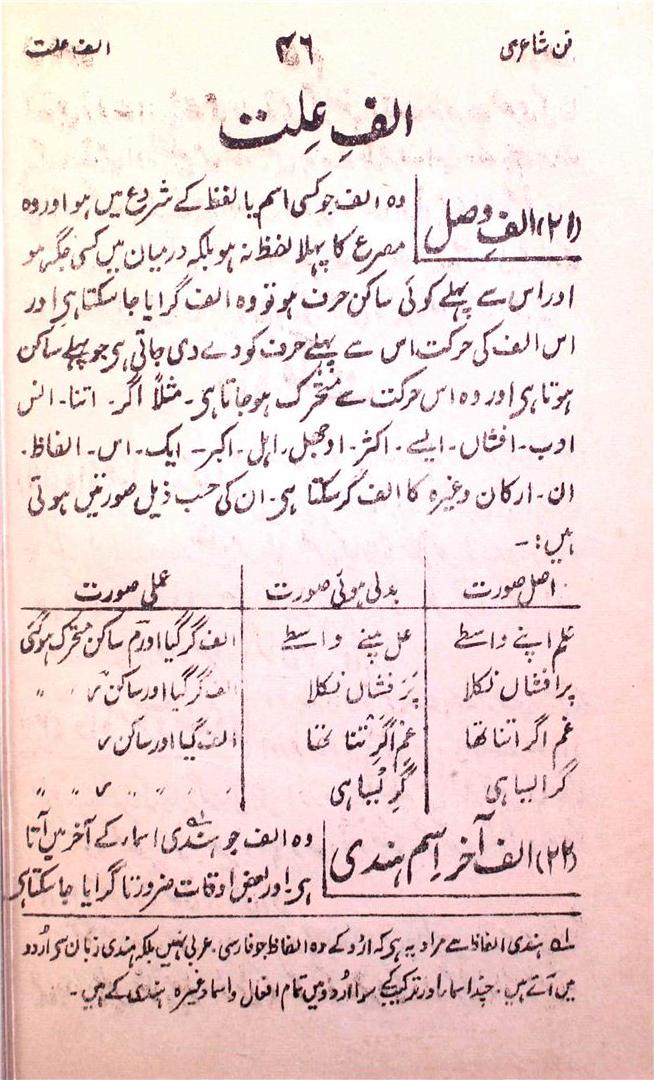 فن شاعری ۴۶ الف علت
الفِ عِلت
(۲۱) الفِ وصل
وہ الف جو کسی اسم یا لفظ کے شروع میں ہو اور وہ
مصرع کا پہلا لفظ نہ ہو بلکہ درمیان میں کسی جگہ ہو
اور اس سے پہلے کوئی ساکن حرف ہو تو وہ الف گرایا جا سکتا ہی اور
اس الف کی حرکت اس سے پہلے حرف کو دے دی جاتی ہی جو پہلے ساکن
ہوتا ہی اور وہ اس حرکت سے متحرک ہو جاتا ہی۔ مثلاً اگر۔ اتنا۔ انس
ادب۔ افشاں۔ ایسے۔ اکثر۔ اوجھل۔ اہل۔ اکبر۔ ایک۔ اس۔ الفاظ۔
ان۔ ارکان وغیرہ کا الف گر سکتا ہی۔ ان کی حسب ذیل صورتیں ہوتی
ہیں:۔
اصل صورت بدلی ہوئی صورت عملی صورت
علم اپنے واسطے عل مپنے واسطے الف گر گیا اور م ساکن متحرک ہو گئی
پر افشاں نکلا پَرَ فشاں نکلا الف گر گیا اور ساکن ر 〃 〃
غم اگر اتنا تھا غم اگرِ تنا تھا الف گیا اور ساکن ر
گر ایسا ہی گرِ یسا ہی 〃 〃 〃 ر 〃 〃
(۲۲) الف آخر اِسم ہندی
وہ الف جو ہندی۱ اسماء کے آخر میں آتا
ہی۔ اور بعض اوقات ضرورتاً گرایا جا سکتا ہی
۱ ہندی الفاظ سے مراد یہ ہی کہ اردو کے وہ الفاظ جو فارسی۔ عربی نہیں بلکہ ہندی زبان سی اُردو
میں آتے ہیں۔ چند اسماء اور ترکیب کے سوا اُردو میں تمام افعال و اسماء وغیرہ ہندی کے ہیں۔